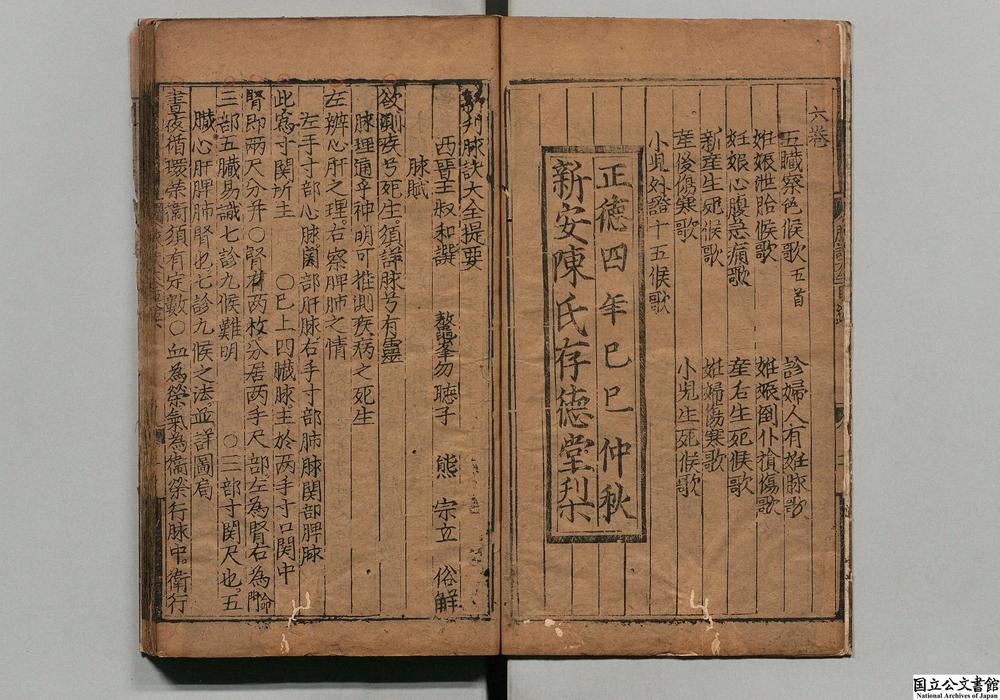 六巻
五臓察色候歌 五首
診婦人有妊脉歌
妊娠泄胎候歌
妊娠倒仆損傷歌
妊娠心腹急痛歌
産右生死候歌
新産生死候歌
妊婦傷寒歌
産後傷寒歌
小児生死候歌
小児外證十五候歌
正德四年巳巳仲秋
新安陳氏存德堂梨
新刊脉訣大全提要
西晋王叔和譔 鰲峯勿聴子 熊宗立 俗解
脉賦
欲測疾兮死生須詳脉兮有靈
脉理通乎神明可推測疾病之死生
左辨心肝之理右察脾肺之情
左手寸部心脉関部肝脉右手寸部肺脉関部脾脉
此為寸関所主 〇巳上四臓脉主於两手寸口関中
腎即兩尺分并〇腎有两枚分居两手尺部左為腎右為命門
三部五臓易識七診九候難明 〇三部寸関尺也五
臓心肝脾肺腎也七診九候之法並詳圖局
晝夜循環榮衛須有定數〇血為榮氣為衛榮行脉中衛行
国立公文書館
National Archives of Japan